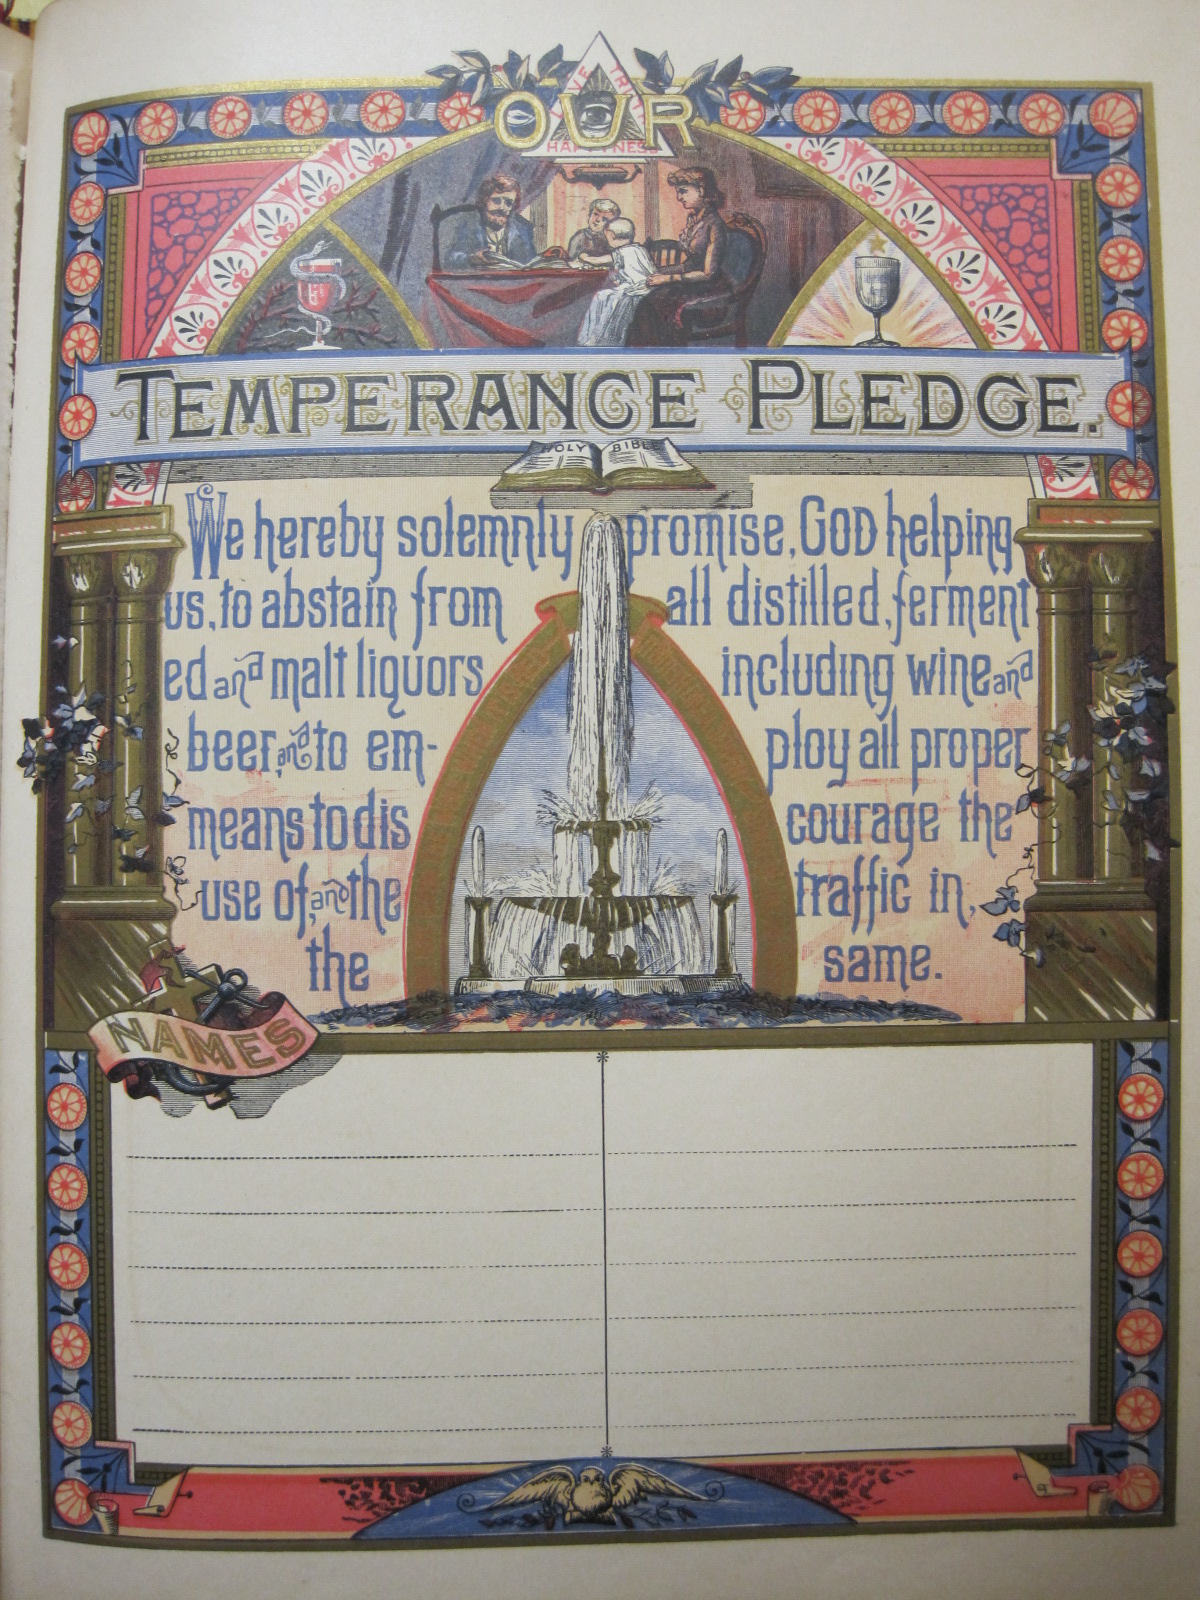 OUR
HAPPINESS
TEMPERANCE PLEDGE.
HOLY BIBLE
We hereby solemnly promise, GOD helping
us, to abstain from all distilled, ferment
ed and malt liquors including wine and
beer, and to em- ploy all proper
means to dis courage the
use of, and the traffic in,
the same.
NAMES